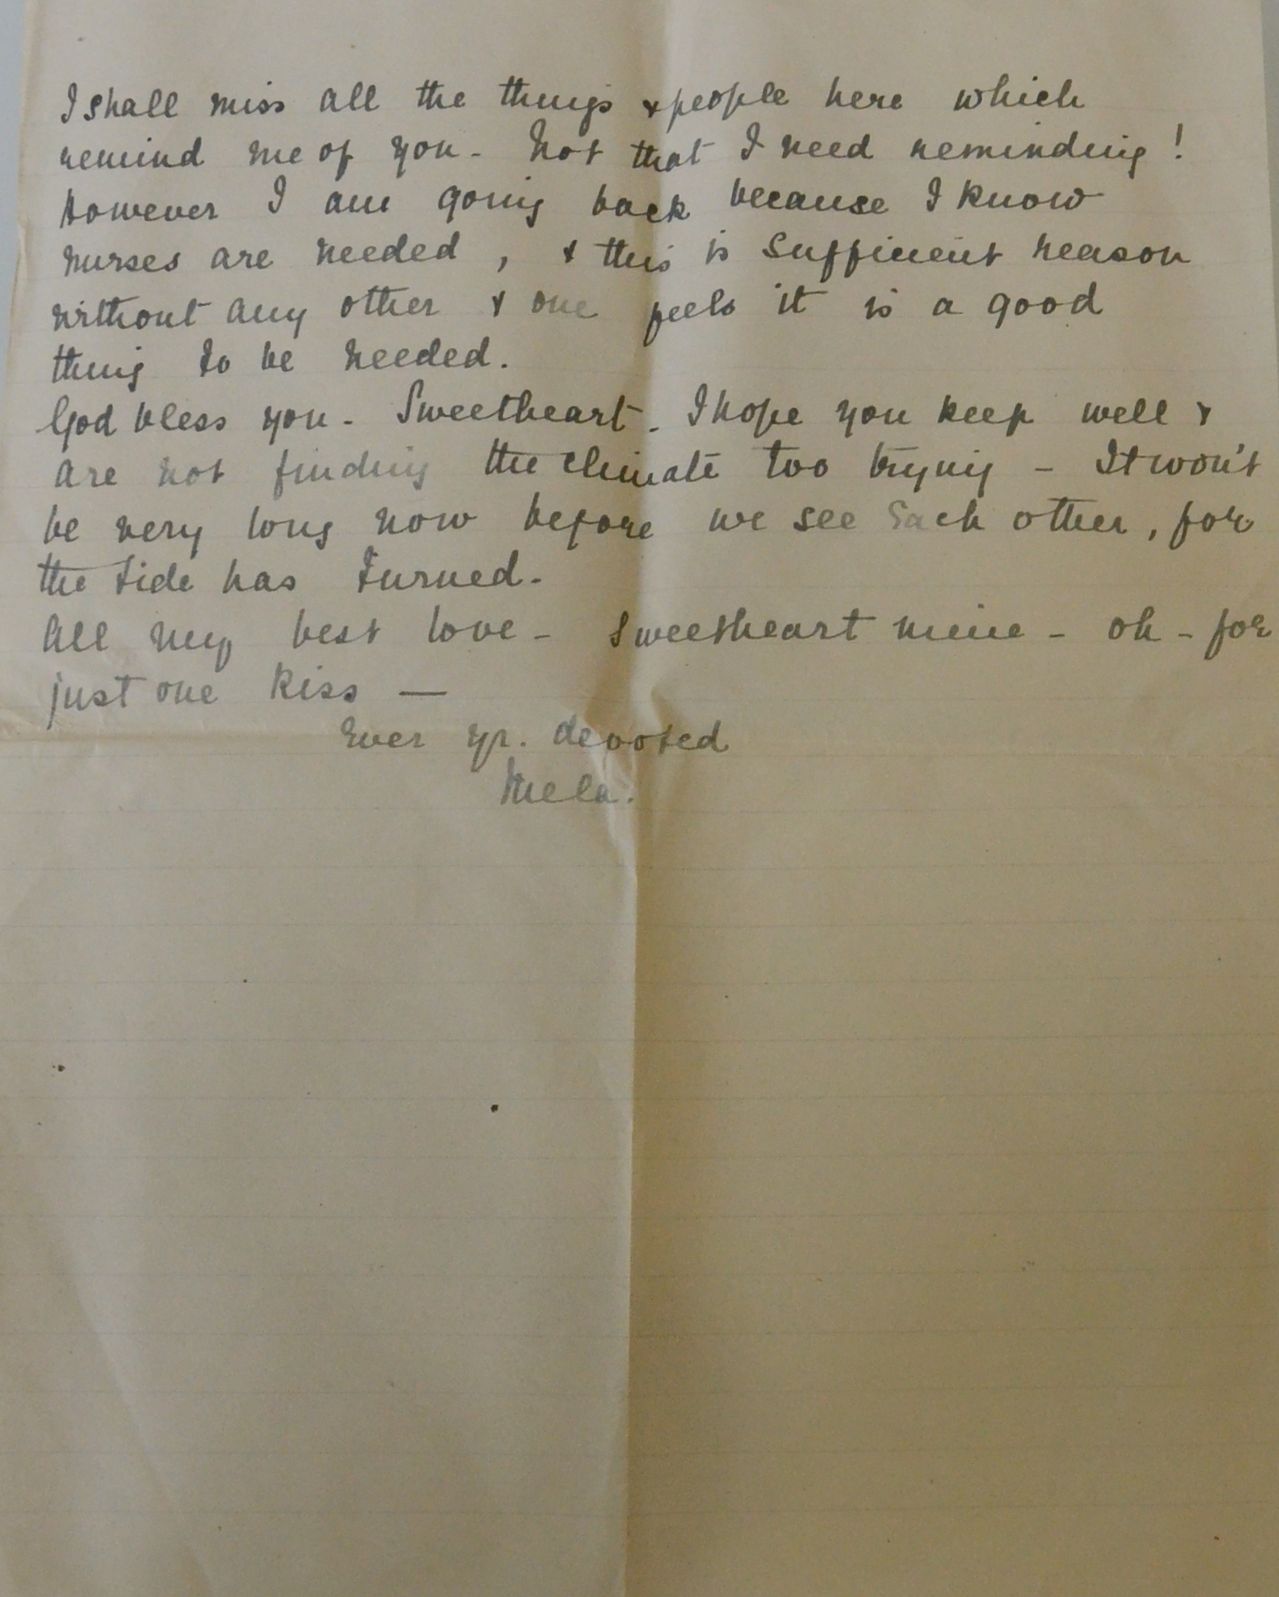 I shall miss all the things & people here which
remind me of you - Not that I need reminding!
However I am going back because I know
nurses are needed, & this is sufficient reason
without any other & one feels it is a good
thing to be needed.
God bless you - Sweetheart. I hope you keep well &
are not finding the climate too trying - It won't
be very long now before we see each other, for
the tide has turned.
All my best love - Sweetheart mine - oh - for
just one kiss —
Ever yr. devoted
Mela.